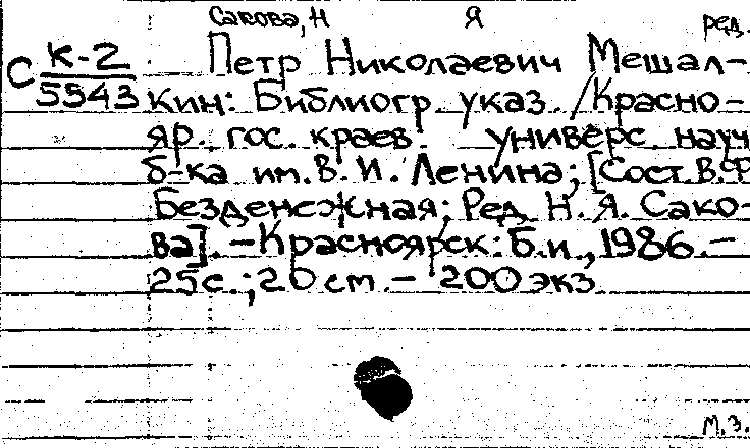 Сакова, Н Я ред.
С К-2
5943
Петр Николаевич Мешал-
кин: Библиогр. указ. /Красно-
яр. гос. краев. универс. науч
б-ка им. В. И. Ленина; [Сост. В.Ф
Безденежная; Ред. Н. Я. Сако-
ва]. – Красноярск: Б.и., 1986. –
25с.; 20 cm – 200 экз.
м.з.